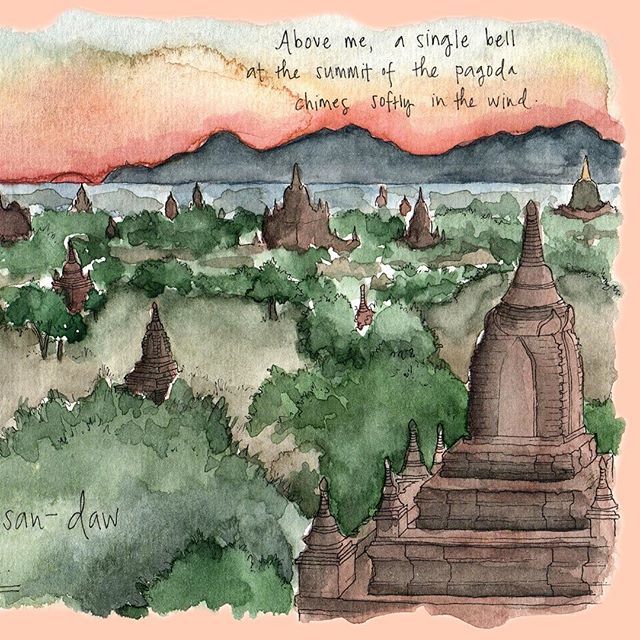 Above me, a single bell
at the summit of the pagoda
chimes softly in the wind.
san-daw